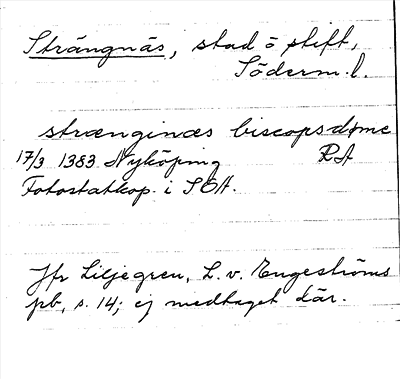 Strängnäs, stad o stift,
Söderm. l.
strænginæs biscopsdøme
17/3 1383 Nyköping RA
Fotostatkop. i SOA.
Jfr Liljegren, L. v. Engeströms
pb, s. 14; ej medtaget där.